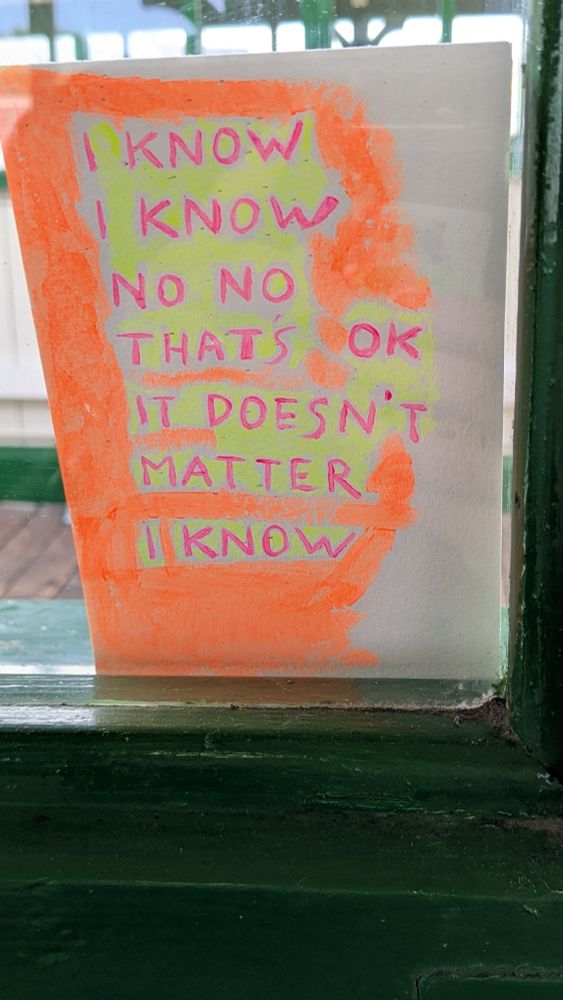 I KNOW
I KNOW
NO NO
THAT'S OK
IT DOESN'T
MATTER
I KNOW